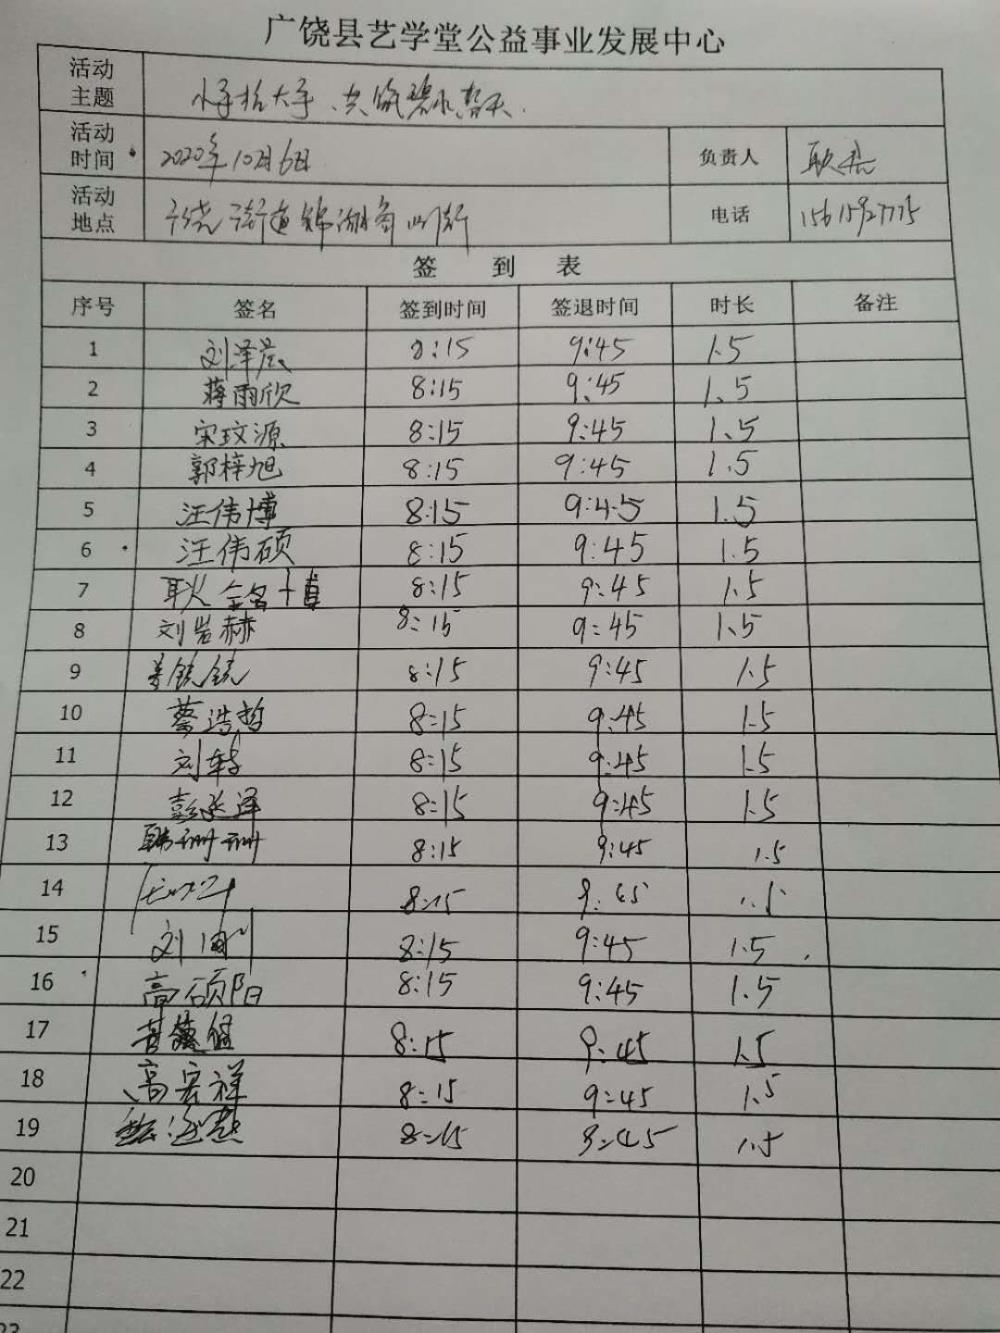 广饶县艺学堂公益事业发展中心
活动主题 小手拉大手、共筑碧水蓝天.
活动时间 2020年10月6日 负责人 耿
活动地点 广饶街道锦湖 电话 15615927775
签 到 表
序号 签名 签到时间 签退时间 时长 备注
1 刘泽宸 8:15 9:45 1.5
2 蒋雨欣 8:15 9:45 1.5
3 宋玟源 8:15 9:45 1.5
4 郭梓旭 8:15 9:45 1.5
5 汪伟博 8:15 9:45 1.5
6 汪伟硕 8:15 9:45 1.5
7 耿铭博 8:15 9:45 1.5
8 刘岩赫 8:15 9:45 1.5
9 8:15 9:45 1.5
10 蔡浩哲 8:15 9:45 1.5
11 刘 8:15 9:45 1.5
12 彭延泽 8:15 9:45 1.5
13 韩珊珊 8:15 9:45 1.5
14 8:15 9:45 1.5
15 刘 8:15 9:45 1.5
16 高硕阳 8:15 9:45 1.5
17 8:15 9:45 1.5
18 高宏祥 8:15 9:45 1.5
19 8:15 9:45 1.5
20
21
22
23